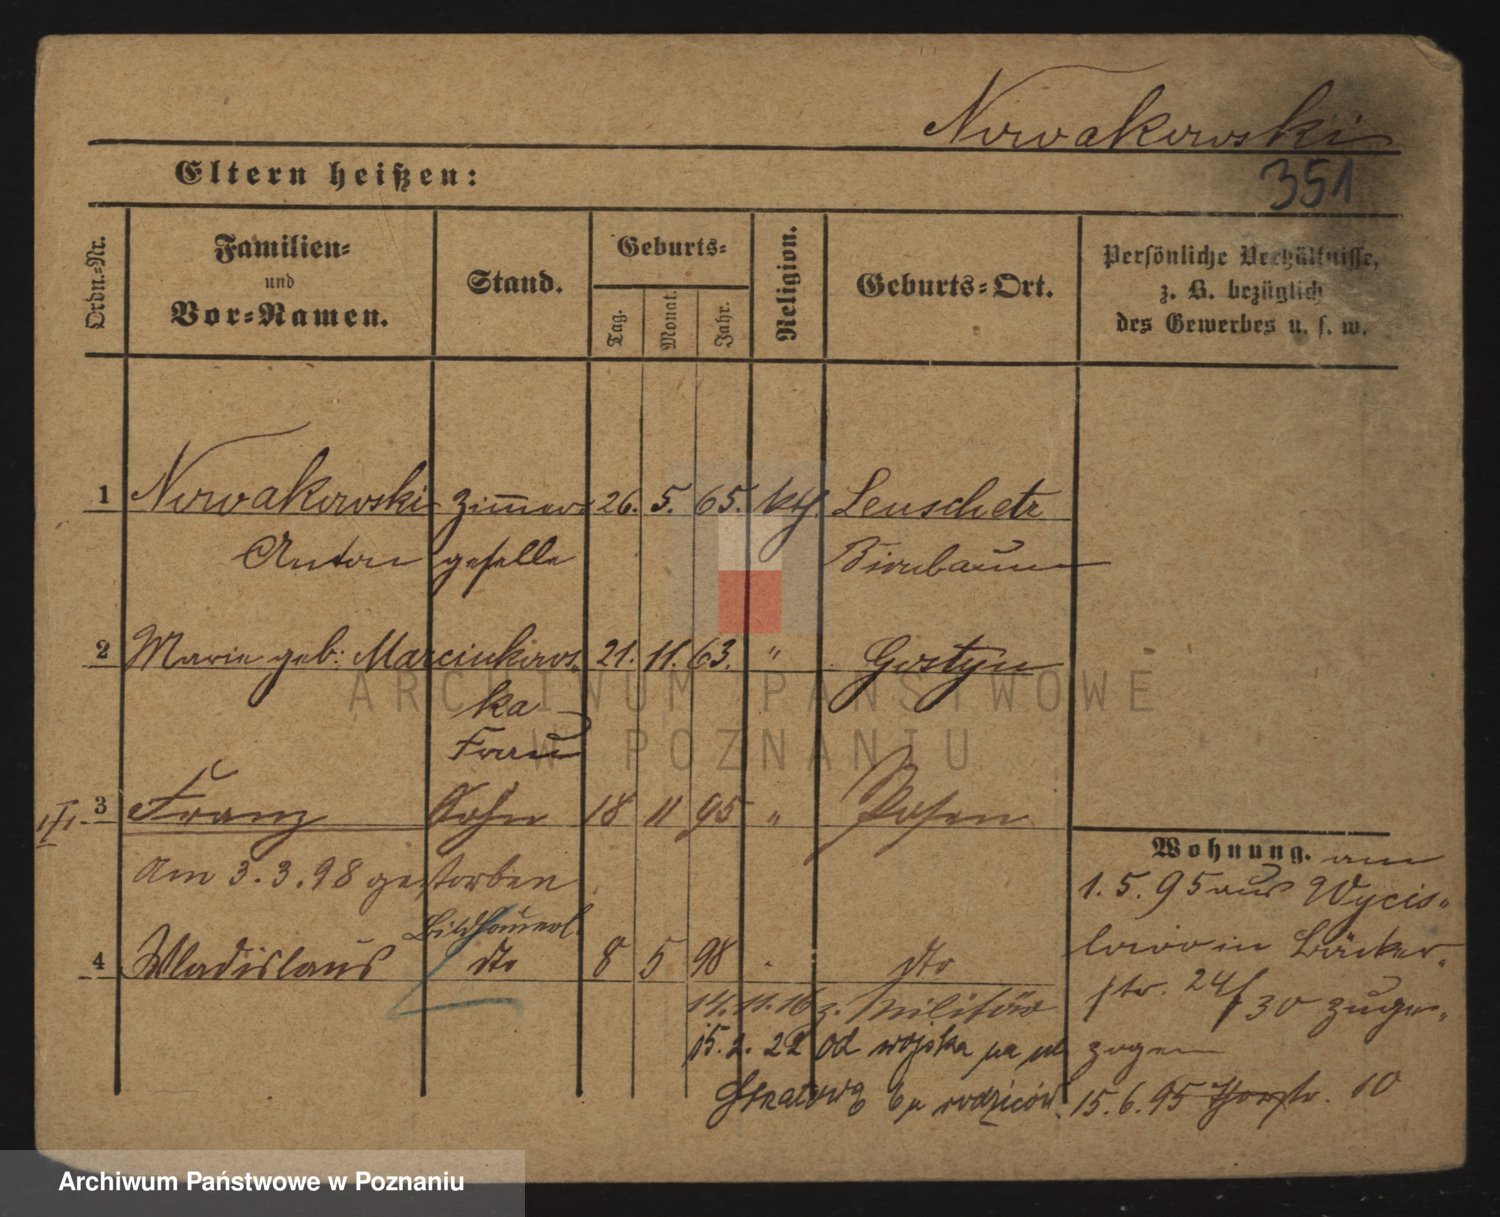 Nowakowski
Eltern heißen:
351
Ordn.-Nr.
Familien-
und
Vor-Namen.
Stand.
Geburts-
Tag.
Monat.
Jahr.
Religion.
Geburts-Ort.
Persönliche Verhältnisse,
z. B. bezüglich
des Gewerbes u. s. w.
1 Nowakowski Zimmer 26. 5. 65. kth. Leuschetz
Anton geselle Birnbaum
2 Marie geb: Marcinkows 21. 11. 63. " Gostyn
ka
Frau
3 Franz Sohn 18 11 95 " Posen
Am 3.3.98 gestorben
Bildhauerl.
4 Wladislaus dto 8 5 98 dto
14.11.16 z. Militär
15.2.22 od wojska na ul.
Strałową 6 u rodziców.
Wohnung. am
1.5.95 aus Wycis-
lowo in Bäcker-
str. 24/30 zuge-
zogen
15.6.95 Thorstr. 10
ARCHIWUM PAŃSTWOWE
W POZNANIU
Archiwum Państwowe w Poznaniu